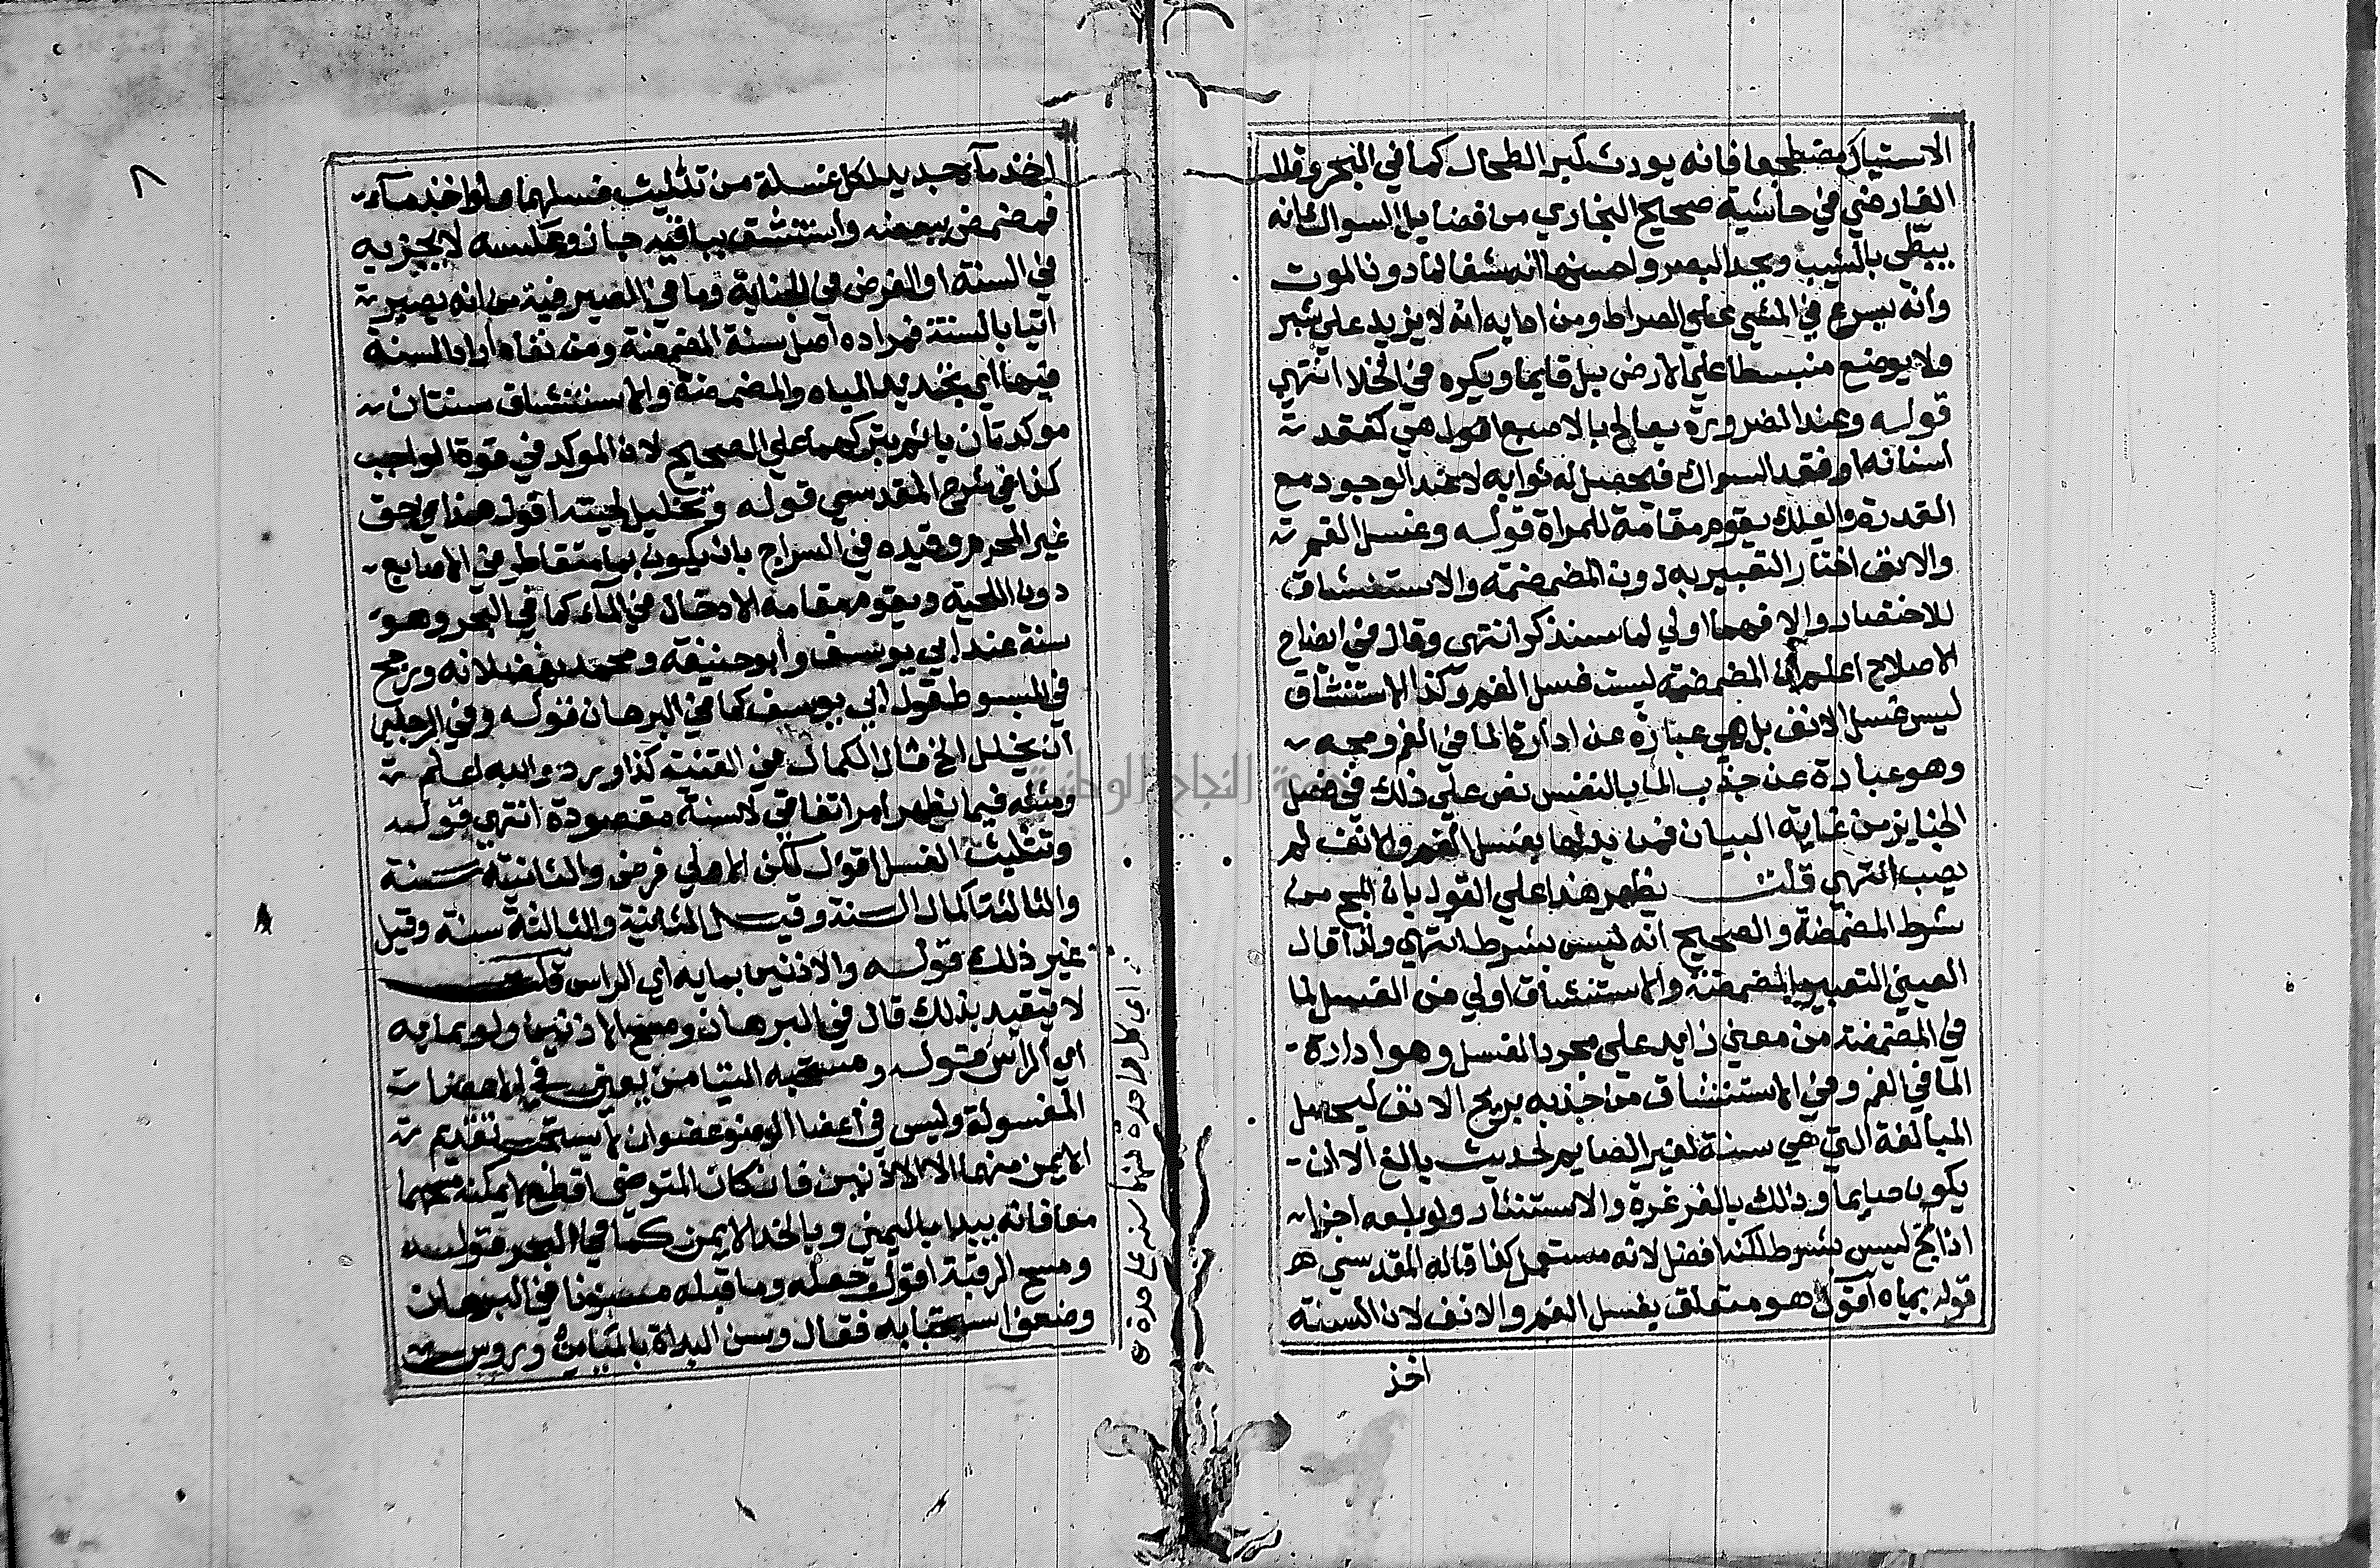 الاستياك مضطجعا فانه يورث كبر الطحال كما في البحر وقال
الفارضي في حاشية صحيح البخاري من فضايل السواك انه
يبطي بالشيب ويحد البصر واحسنها انه شفا لما دون الموت
وانه يسرع في المشي علي الصراط ومن ادابه انه لا يزيد علي شبر
ولا يوضع منبسطا علي الارض بل قايما ويكره في الخلا انتهي
قوله وعند الضرورة يعالج بالاصبع اقول هي كفقد
اسنانه او فقد السواك فيحصل له ثوابه لا عند الوجود مع
القدرة والعلك يقوم مقامه للمراة قوله وغسل الفم
والانف اختار التعبير به دون المضمضة والاستنشاق
للاختصار والا فهما اولي لما سنذكر انتهي وقال في ايضاح
الاصلاح اعلم ان المضمضة ليست غسل الفم وكذا الاستنشاق
ليس غسل الانف بل هي عبارة عن ادارة الما في الفم ومجه
وهو عبارة عن جذب الما بالنفس نص علي ذلك في فصل
الجنايز من غاية البيان فمن بدلها بغسل الفم والانف لم
يصب انتهي قلت يظهر هذا علي القول بان المج من
شرط المضمضة والصحيح انه ليس بشرط انتهي ولذا قال
العيني التعبير بالمضمضة والاستنشاق اولي من الغسل لما
في المضمضة من معني زايد علي مجرد الغسل وهو ادارة
الما في الفم وفي الاستنشاق من جذبه بريح الانف ليحصل
المبالغة التي هي سنة لغير الصايم لحديث بالغ الا ان
يكون صايما وذلك بالغرغرة والاستنثار ولو بلعه اجزا
اذ المج ليس بشرط لكنه افضل لانه مستعمل كذا قاله المقدسي
قوله بمياه اقول هو متعلق بغسل الفم والانف لان السنة
اخذ
اخذ مآء جديد لكل غسلة من تثليث غسلهما ولو اخذ مآء
فمضمض ببعضه واستنشق بباقيه جاز وعكسه لا يجزيه
في السنة او الفرض في الجنابة وما في الصيرفية من انه يصير
اتيا بالسنة فمراده اصل سنة المضمضة ومن نفاه اراد السنة
فيها اي بتجديد المياه والمضمضة والاستنشاق سنتان
موكدتان ياثم بتركهما علي الصحيح لان الموكد في قوة الواجب
كذا في شرح المقدسي قوله وتخليل لحيته اقول هذا في حق
غير المحرم وقيده في السراج بان يكون بما متقاطر في الاصابع
دون اللحية ويقوم مقامه الادخال في المآء كما في البحر وهو
سنة عند ابي يوسف وابو حنيفة ومحمد يفضلانه ورجح
في المبسوط قول ابي يوسف كما في البرهان قوله وفي الرجلين
ان يخلل الخ قال الكمال في القنية كذا ورد والله اعلم
ومثله فيما يظهر امر اتفاقي لا سنة مقصودة انتهي قوله
وتثليث الغسل اقول لكن الاولي فرض والثانية سنة
والثالثة اكمال السنة وقيل الثانية والثالثة سنة وقيل
غير ذلك قوله والاذنين بمايه اي الراس قلت
لا يتقيد بذلك قال في البرهان ومسح الاذنين ولو بمايه
اي الراس قوله ومستحبه التيامن يعني في الاعضا
المغسولة وليس في اعضا الوضو عضوان لا يستحب تقديم
الايمن منهما الا الاذنين فان كان المتوضي اقطع لا يمكنه مسحهما
معا فانه يبدا باليمني وبالخد الايمن كما في البحر قوله
ومسح الرقبة اقول جعله وما قبله مسنونا في البرهان
وضعف استحبابه فقال وسن البداة بالميامن وروس
اي كل واحدة منهما سنة علي حدة
٨
جامعة النجاح الوطنية